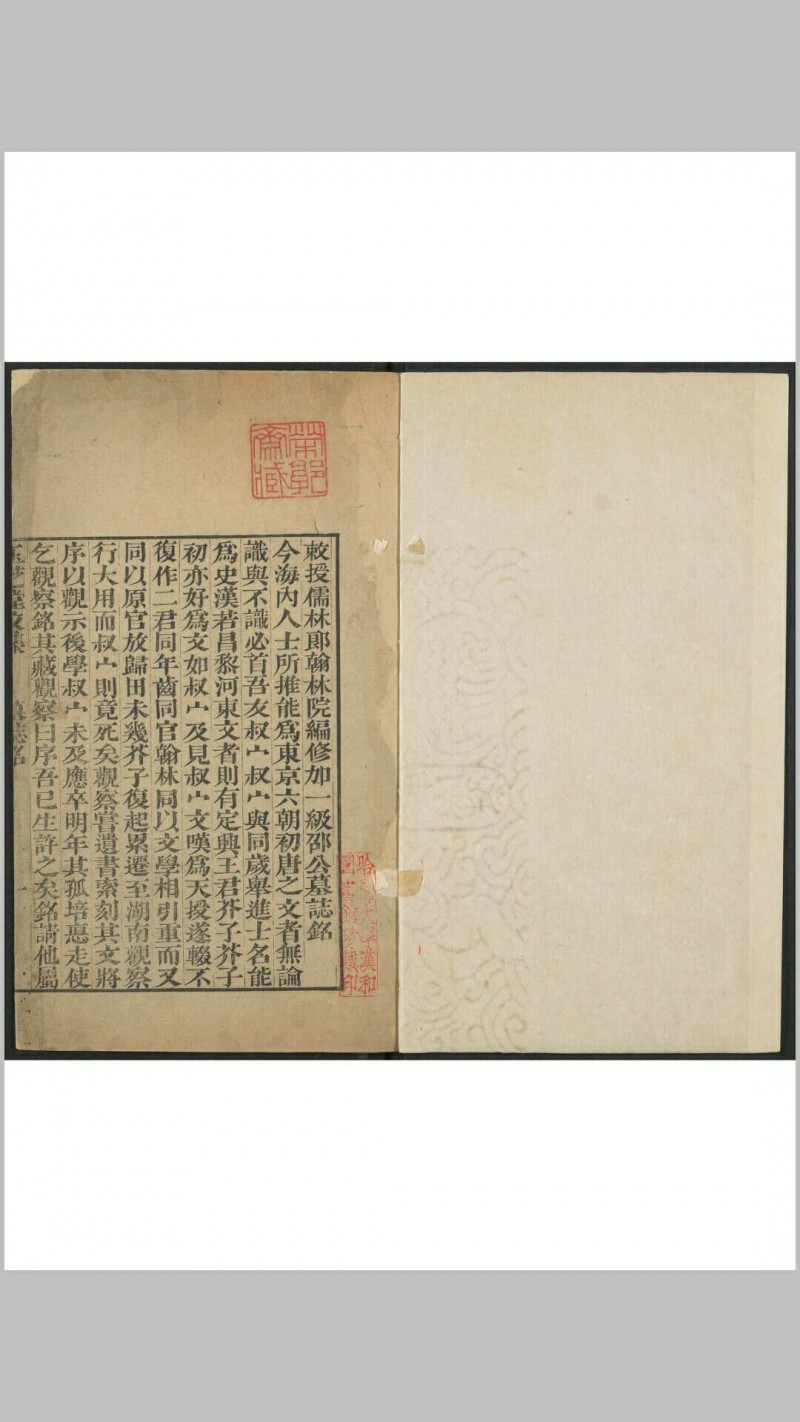 敕授儒林郎翰林院編修加一級邵公墓誌銘
今海內人士所推能爲東京六朝初唐之文者無論
識與不識必首吾友叔宀叔宀與同歲舉進士名能
爲史漢若昌黎河東文者則有定興王君芥子芥子
初亦好爲文如叔宀及見叔宀文嘆爲天授遂輟不
復作二君同年齒同官翰林同以文學相引重而又
同以原官放歸田未幾芥子復起累遷至湖南觀察
行大用而叔宀則竟死矣觀察嘗遺書索刻其文將
序以觀示後學叔宀未及應卒明年其孤培悳走使
乞觀察銘其藏觀察曰序吾已生許之矣銘請他屬
玉芝堂文集 墓誌銘 一